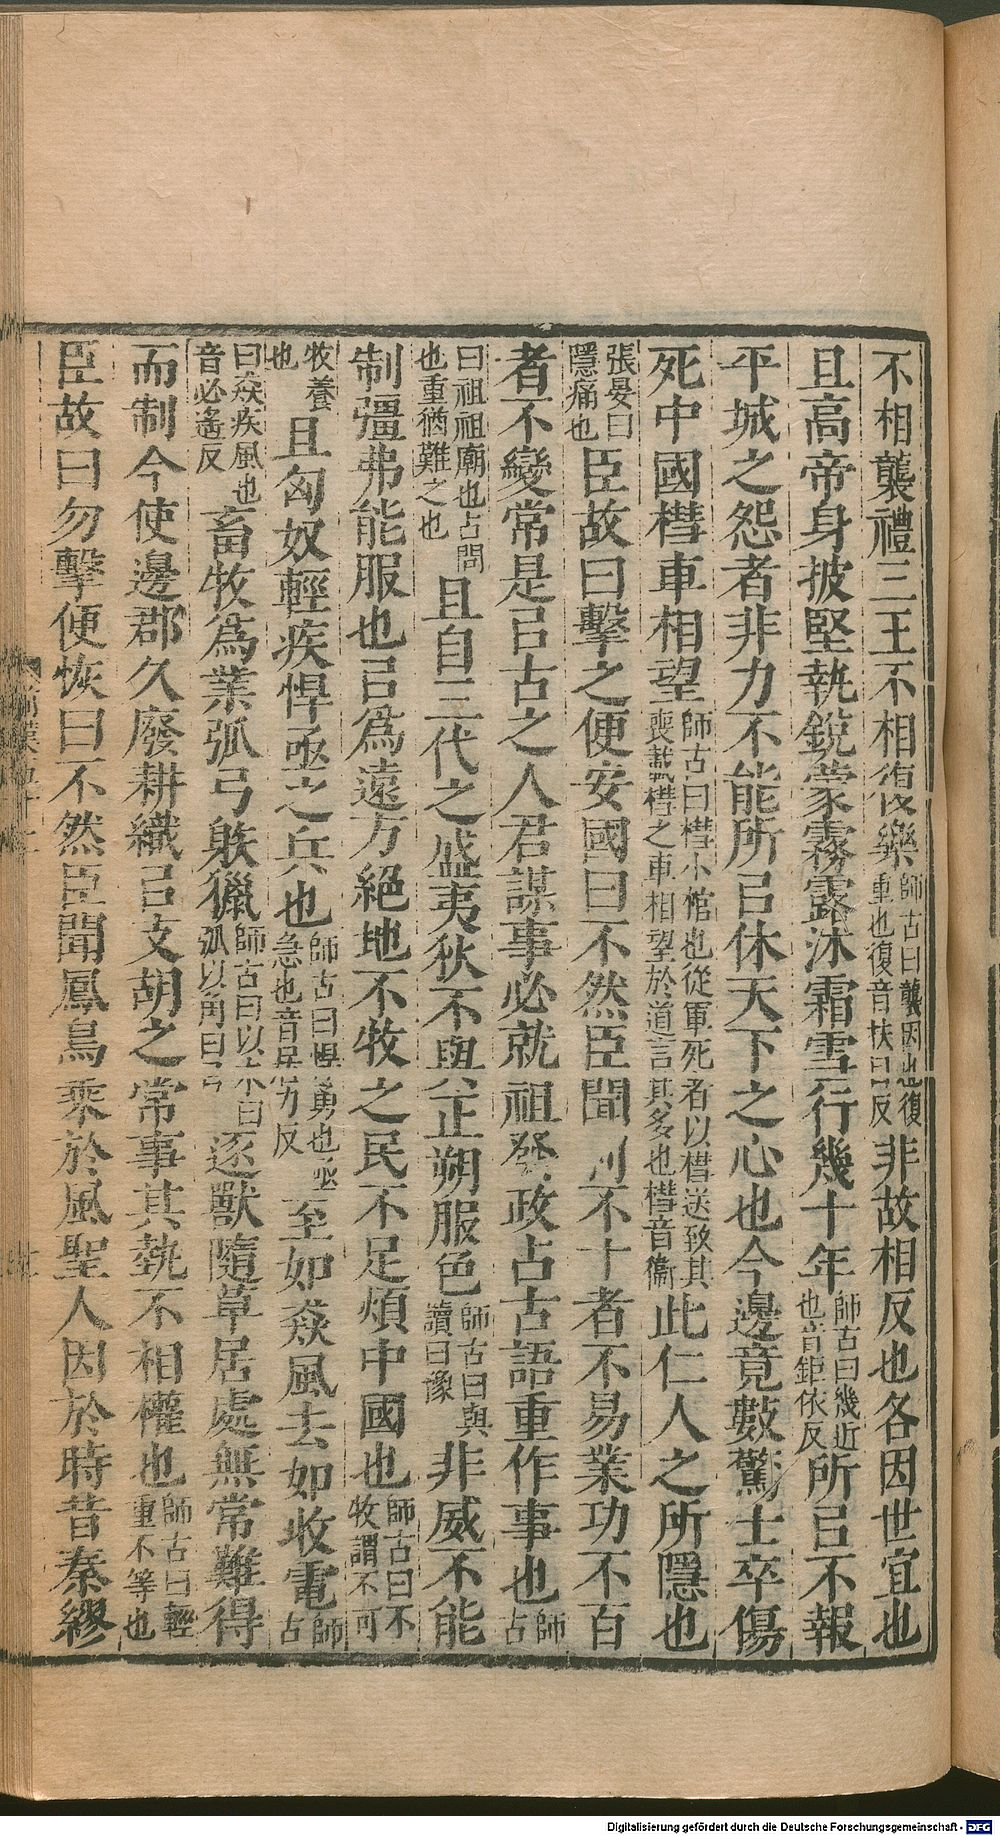 不相襲禮三王不相復樂師古曰襲因也復重也復音扶目反非故相反也各因世宜也
且高帝身披堅執銳蒙霧露沐霜雪行幾十年師古曰幾近也音鉅依反所㠯不報
平城之怨者非力不能所㠯休天下之心也今邊竟數驚士卒傷
死中國槥車相望師古曰槥小棺也從軍死者以槥送致其喪載槥之車相望於道言其多也槥音衞此仁人之所隱也
張晏曰隱痛也臣故曰擊之便安國曰不然臣聞利不十者不易業功不百
者不變常是㠯古之人君謀事必就祖發政占古語重作事也師古
曰祖祖廟也占問也重猶難之也且自三代之盛夷狄不與正朔服色師古曰與讀曰豫非威不能
制彊弗能服也㠯爲遠方絕地不牧之民不足煩中國也師古曰不牧謂不可
牧養也且匈奴輕疾悍亟之兵也師古曰悍勇也亟急也音居力反至如猋風去如收電師古
曰猋疾風也音必遙反畜牧爲業弧弓躲獵師古曰以木曰弧以角曰弓逐獸隨草居處無常難得
而制今使邊郡久廢耕織㠯支胡之常事其埶不相權也師古曰輕重不等也
臣故曰勿擊便恢曰不然臣聞鳳鳥乘於風聖人因於時昔秦繆
Digitalisierung gefördert durch die Deutsche Forschungsgemeinschaft - DFG